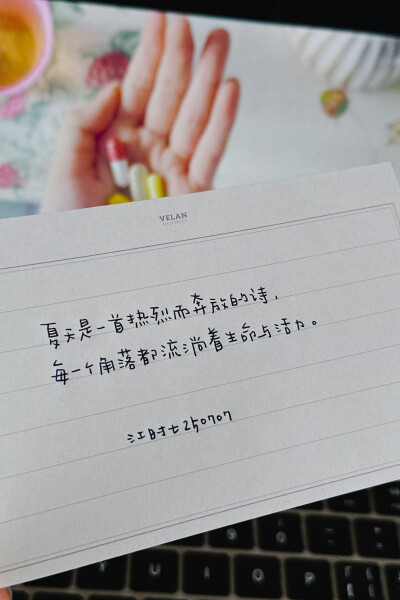 VELAN
夏天是一首热烈而奔放的诗，
每一个角落都流淌着生命与活力。
江时七250707
9 0
Y U I O P